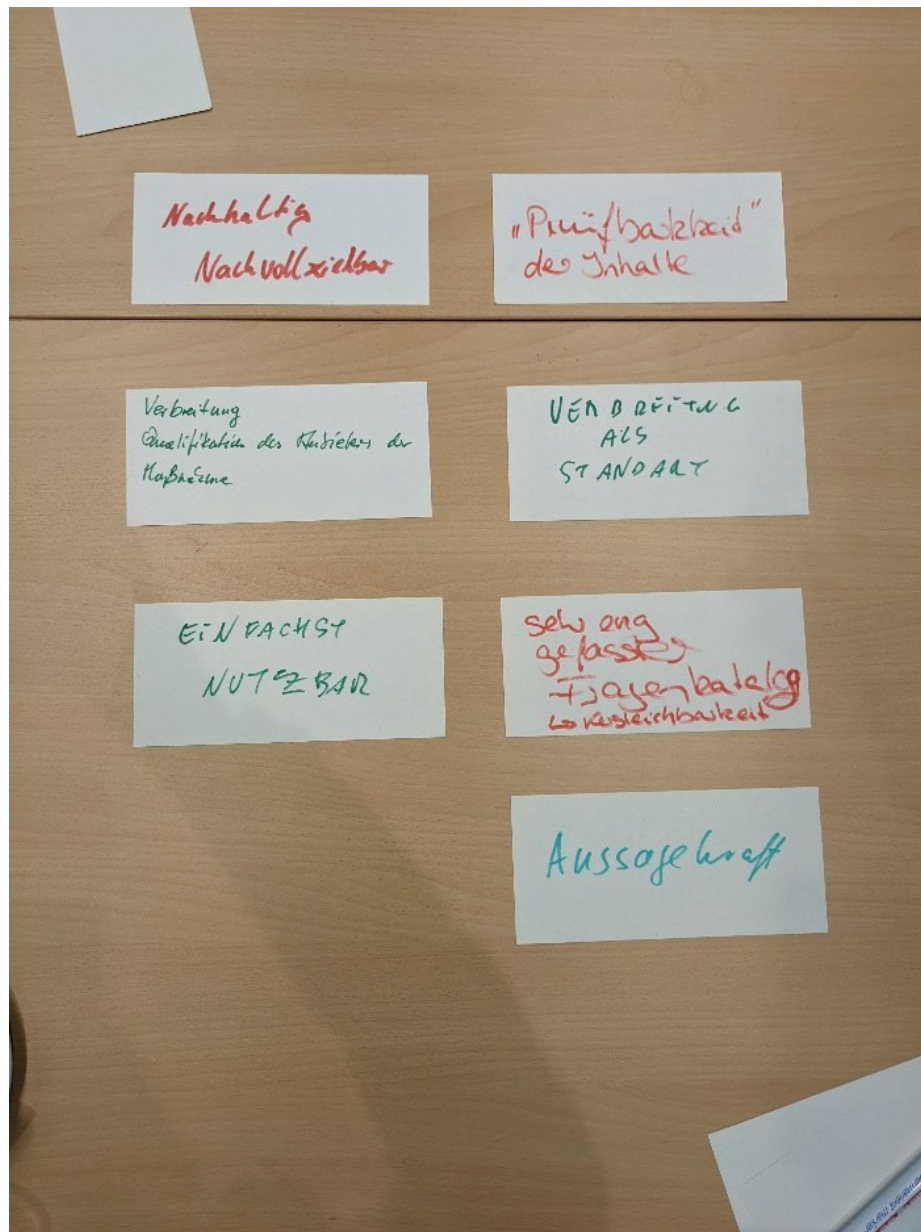 Nachhaltig
Nachvollziehbar
„Prüfbarkeit"
der Inhalte
Verbreitung
Qualifikation des Anbieters der
Maßnahme
VERBREITUNG
ALS
STANDART
EINFACHST
NUTZBAR
sehr eng
gefasster
Fragenkatalog
↳ Vergleichbarkeit
Aussagekraft